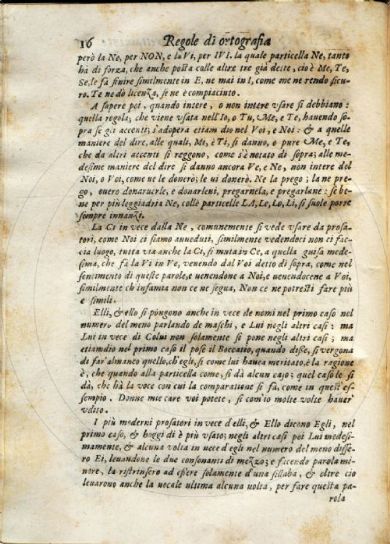 16 Regole di ortografia
però la Ne, per NON, e la Vi, per IVI. la quale particella Ne, tanto
hà di forza, che anche posta colle altre tre già dette, cio è Me, Te,
Se, le fà finire similmente in E, ne mai in I, come me ne rendo sicu-
ro. Te ne dò licenza, se ne è compiacinto.
A sapere poi, quando intere, o non intere vsare si debbiano:
quella regola; che viene vsata nell'Io, o Tu, Me, e Te, hauendo so-
pra se gli accenti; s'adopera etiam dio nel Voi, e Noi: & a quelle
maniere del dire, alle quali, Mi, è Ti, si danno, o pure Me, e Te,
che da altri accenti si reggono, come s'è notato di sopra; alle me-
desime maniere del dire si danno ancora Ve, e Ne, non intere del
Noi, o Voi, come ue le donerò; le ui donerò. Ne la prego; la ne pre-
go, ouero donarucrle, e douarleui, pregarnela, e pregarlane: se be-
ne per più leggiadria Ne, colle particelle LA, Le, Lo, Li, si suole porre
sempre innanzi.
La Ci in vece dalla Ne, comunemente si vede vsare da prosa-
tori, como Noi ci siamo auueduti, similmente vedendoci non ci fac-
cia luogo, tutta via anche la Ci, si muta in Ce, a quella guisa mede-
sima, che fà la Vi in Ve, venendo dal Voi detto di sopra, come nel
sentimento di queste parole, e uencendone a Noi, e uencendocene a Voi,
similmente ch'infamia non ce ne segua, Non ce ne potresti fare più
e simili.
Elli, & ello si pongono anche in vece de nomi nel primo caso nel
numero del meno parlando de maschi, e Lui negli altri casi; ma
Lui in vece di Colui non solamente si pone negli altri casi; ma
etiandio nel primo caso il pose il Boccatio, quando disse, si vergona
di far'almanco quello, ch'egli, si come lui hauea meritato, è la ragione
è, che quando alla particella come, si dà alcun caso; quel caso le si
dà, che hà la voce con cui la comparatione si fà, come in questi es-
sempio. Donne mie care voi potete, si com'io molte volte hauer
vdito.
I più moderni prosatori in vece d'elli, & Ello dicono Egli, nel
primo caso, & hoggi dì è più vsato; negli altri casi poi Lui medesi-
mamente, & alcuna volta in vece d'egli nel numero del meno disse-
ro Ei, leuandone le due consonanti di mezzo; e facendo parola mi-
nore, la ristrinsero ad essere solamente d'una sillaba, & oltre cio
leuarono anche la uocale ultima alcuna uolta, per fare questa pa-
rola